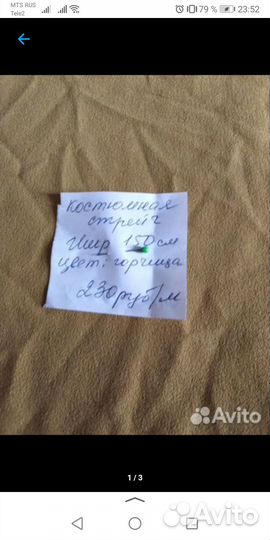 MTS RUS
Tele2
79 %
23:52
Костюмная
стрейч
Шир 150 см
цвет: горчица
230 руб/м
Avito
1 / 3
Avito